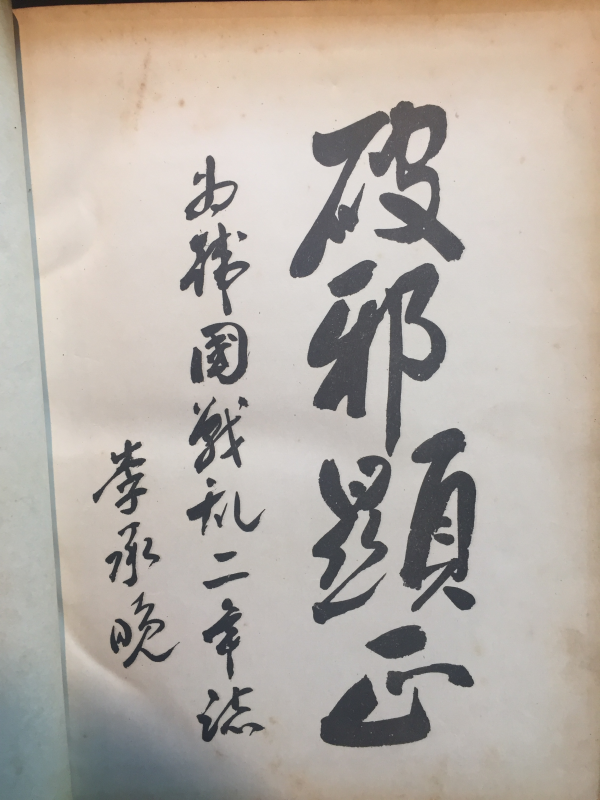 破邪顕正
为韓國戰乱二年誌
李承晩